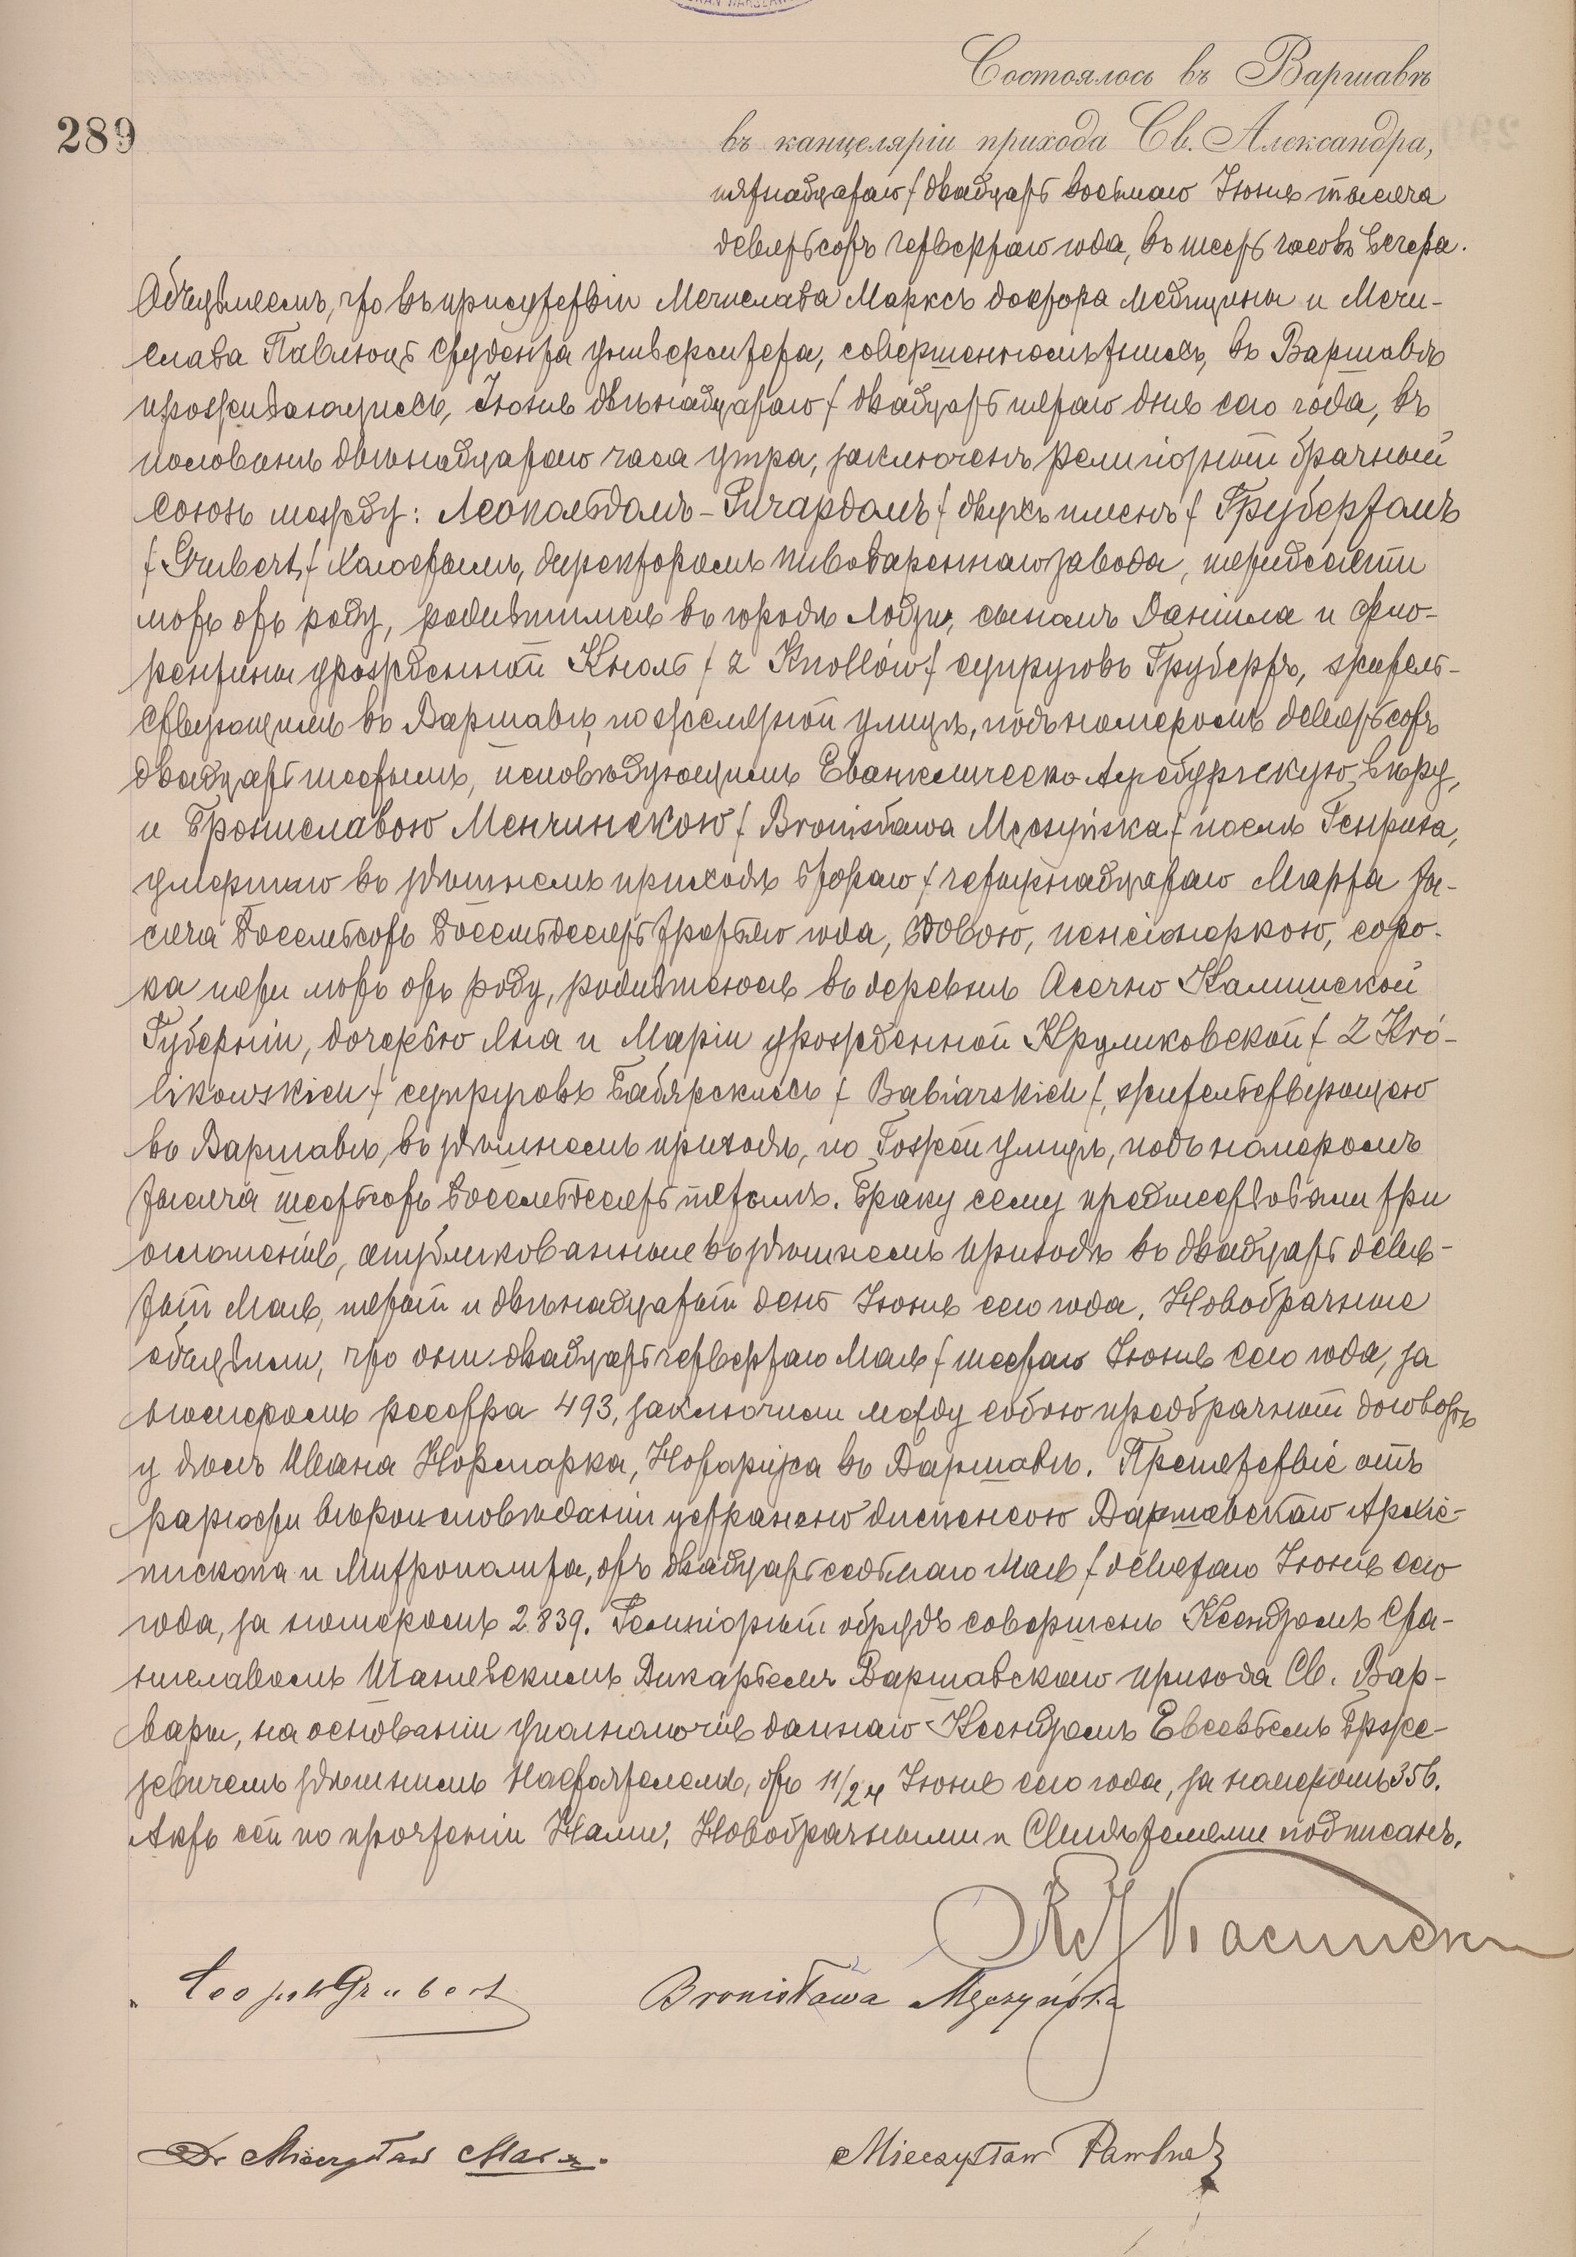 289
Состоялось въ Варшавѣ
въ канцеляріи прихода Св. Александра,
пятнадцатаго / двадцать восьмаго Іюня тысяча
девятьсотъ четвертаго года, въ шесть часовъ вечера.
Объявляемъ, что въ присутствіи Мечислава Марксъ доктора медицины и Мечи-
слава Павлюцъ студента университета, совершеннолѣтнихъ, въ Варшавѣ
проживающихъ, Іюня двѣнадцатаго / двадцать пятаго дня сего года, въ
половинѣ двѣнадцатаго часа утра, заключенъ религіозный брачный
союзъ между: Леопольдомъ-Ричардомъ / двухъ именъ / Грубертомъ
/ Grubert / холостымъ, директоромъ пивовареннаго завода, пятидесяти
лѣтъ отъ роду, родившимся въ городѣ Лодзи, сыномъ Даніила и Фло-
рентины урожденной Кноль / z Knollów / супруговъ Грубертъ, житель-
ствующимъ въ Варшавѣ, по Желѣзной улицѣ, подъ номеромъ девятьсотъ
двадцать шестымъ, исповѣдующимъ Евангелическо Аугсбургскую вѣру,
и Брониславою Менчинскою / Bronisława Męczyńska / послѣ Генриха,
умершаго въ здѣшнемъ приходѣ втораго / четырнадцатаго Марта ты-
сяча восемьсотъ восемьдесятъ третьяго года, вдовою, пенсіонеркою, соро-
ка пяти лѣтъ отъ роду, родившеюся въ деревнѣ Осечно Калишской
Губерніи, дочерью Яна и Маріи урожденной Круликовской / z Kró-
likowskich / супруговъ Бабярскихъ / Babiarskich /, жительствующею
въ Варшавѣ, въ здѣшнемъ приходѣ, по Гожей улицѣ, подъ номеромъ
тысяча шестьсотъ восемьдесятъ пятымъ. Браку сему предшествовали три
оглашенія, опубликованныя въ здѣшнемъ приходѣ въ двадцать девя-
тый Мая, пятый и двѣнадцатый день Іюня сего года. Новобрачные
объявили, что они двадцать четвертаго Мая / шестаго Іюня сего года, за
номеромъ реестра 493, заключили между собою предбрачный договоръ
у Ивана Нотаріуса въ Варшавѣ. Препятствіе отъ
разности вѣроисповѣданій устранено диспенсою Варшавскаго Архіе-
пископа и Митрополита, отъ двадцать седьмаго Мая / девятаго Іюня сего
года, за номеромъ 2839. Религіозный обрядъ совершенъ Ксендзомъ Ста-
ниславомъ Викаріемъ Варшавскаго прихода Св. Вар-
вары, на основаніи уполномочія даннаго Ксендзомъ Евсевіемъ Брже-
зевичемъ здѣшнимъ Настоятелемъ, отъ 11/24 Іюня сего года, за номеромъ 356.
Актъ сей по прочтеніи Нами, Новобрачными и Свидѣтелями подписанъ.
Leopold Grubert
Bronisława Męczyńska
Dr Mieczysław Marx.
Mieczysław